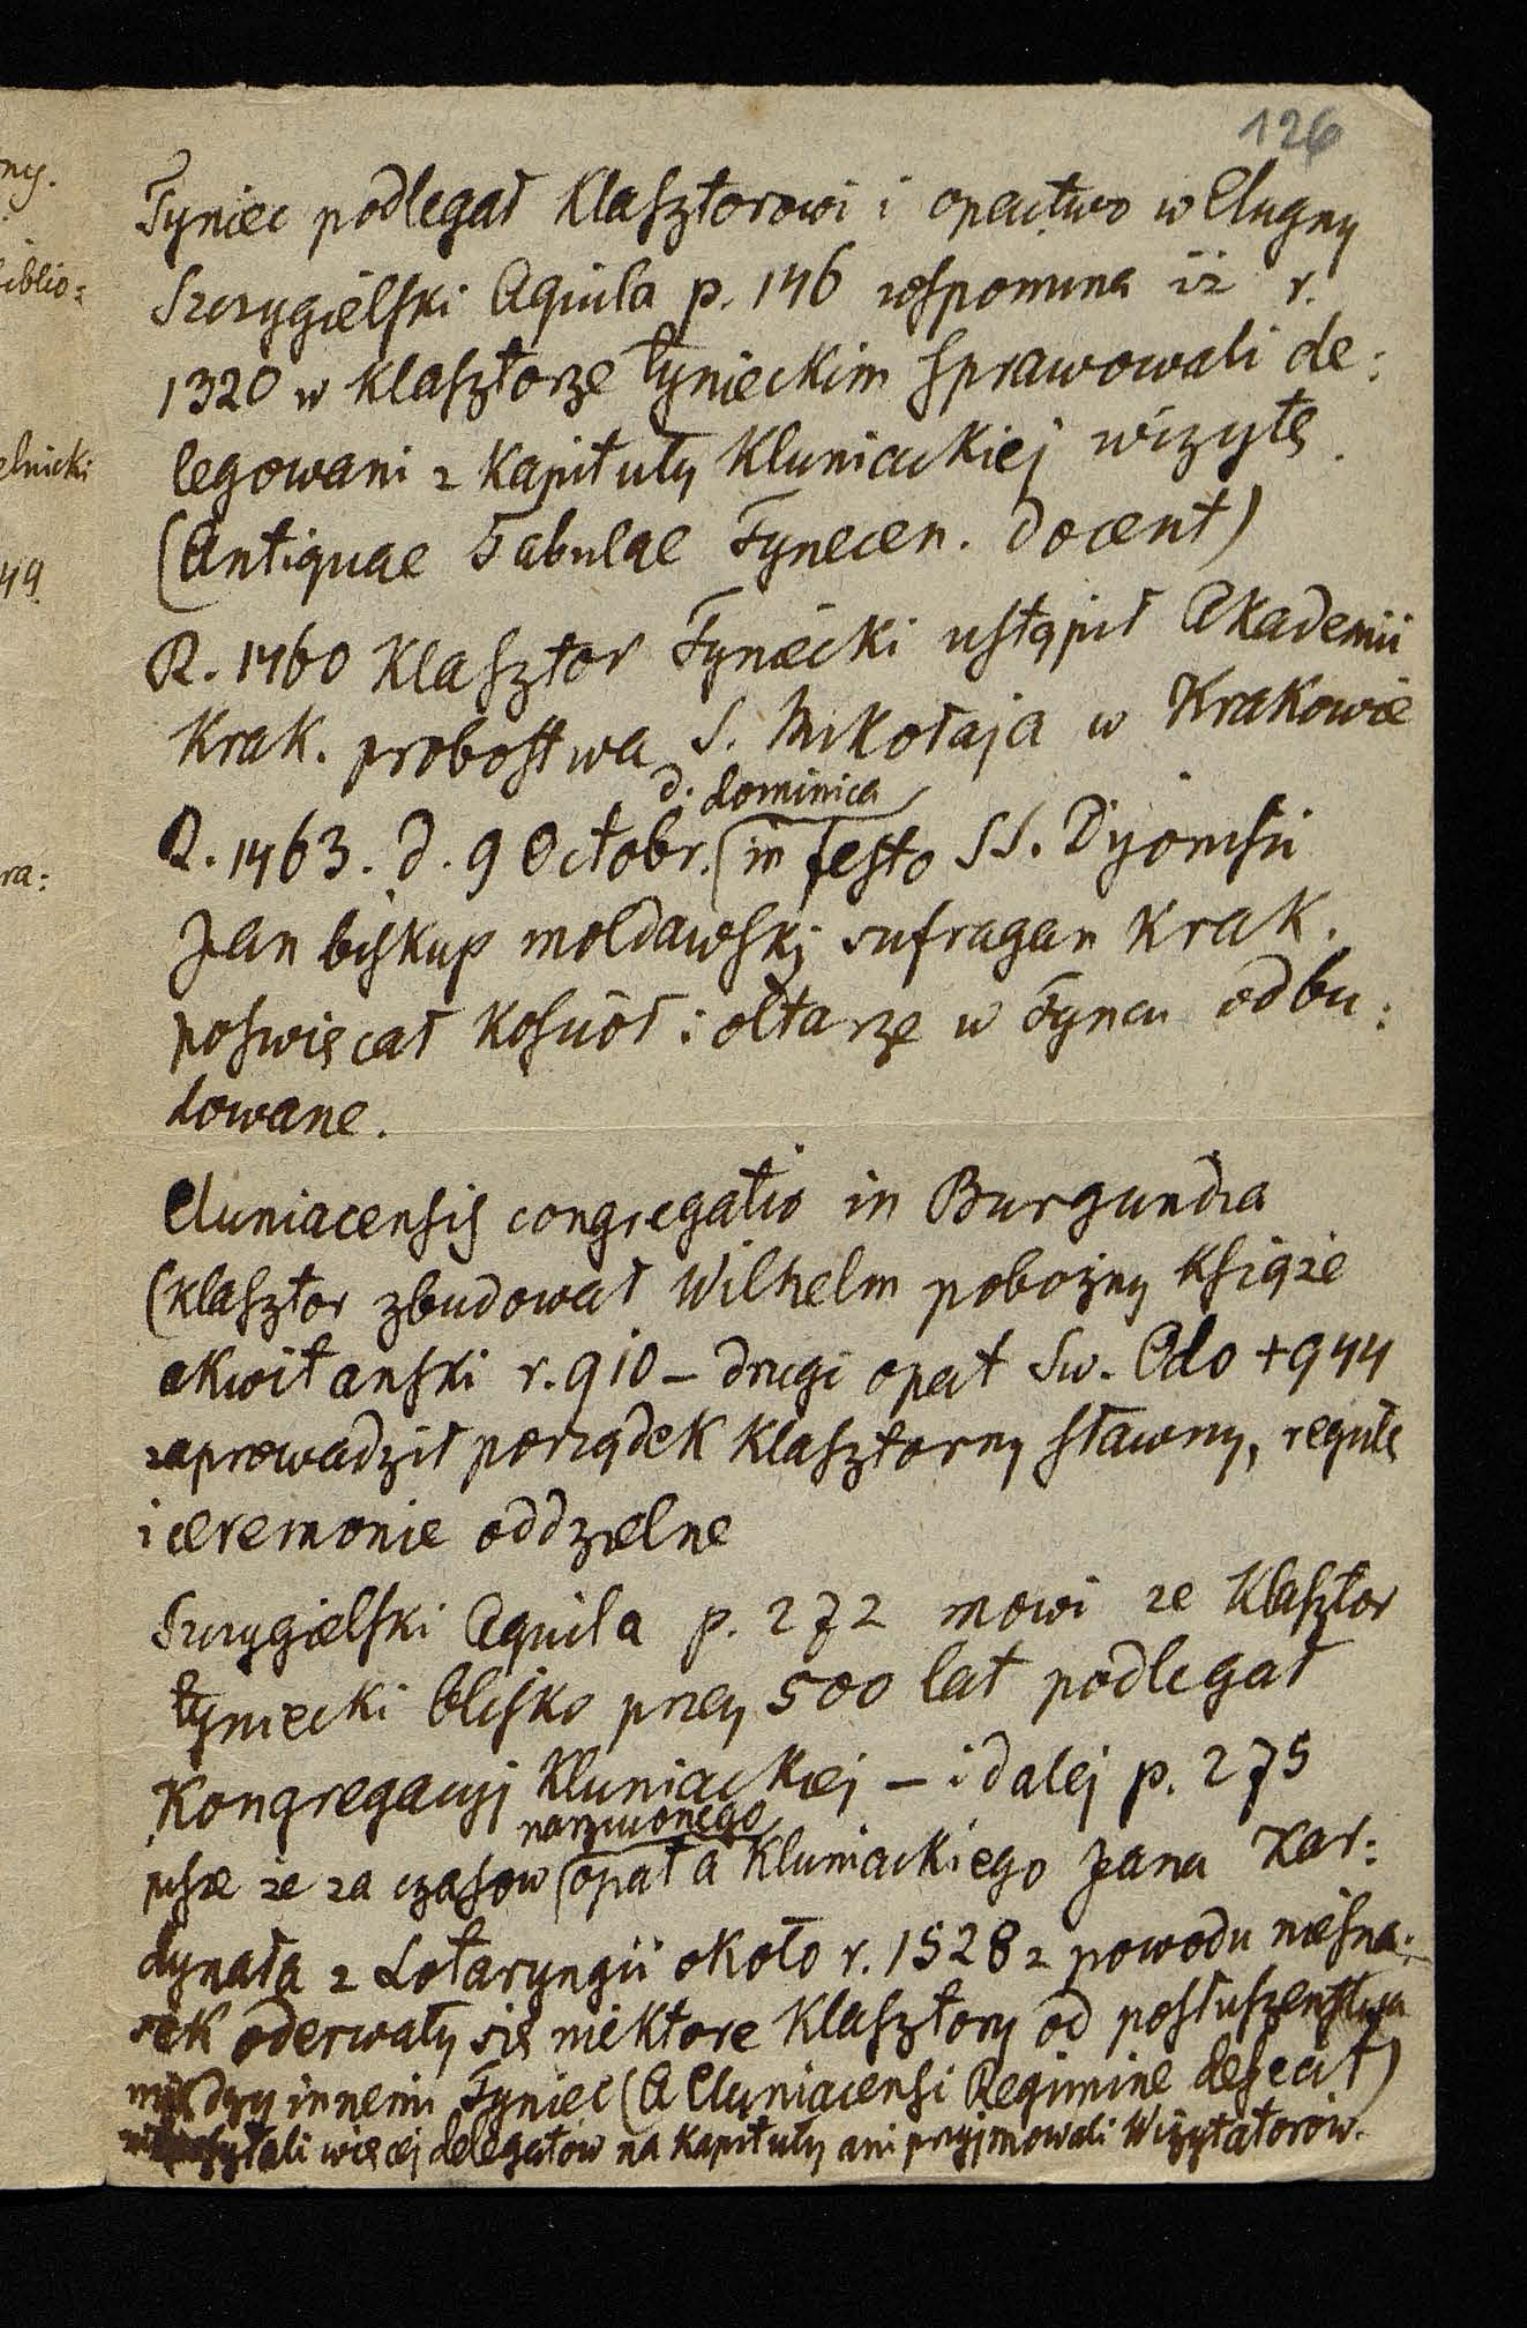 126
Tyniec podlegał klasztorowi i opactwo w Clugny
Szczygielski Aquila p. 146 wspomina iż r.
1320 w klasztorze tynieckim sprawowali de:
legowani z Kapituły Kluniackiej wizytę.
(Antiquae Tabulae Tynecen. docent)
R. 1460 Klasztor Tyniecki ustąpił Akademii
Krak. probostwa S. Mikołaja w Krakowie
d. dominica
R. 1463. d. 9 Octobr. in festo SS. Dyonisii
Jan biskup mołdawski sufragan Krak.
poswięcał Kosciół i ołtarze w Tyncu odbu:
dowane.
Cluniacensis congregatio in Burgundia
(klasztor zbudował Wilhelm pobożny Książe
akwitanski r. 910 – drugi opat Sw. Odo +944
zaprowadził porządek klasztorny sławny, regułę
i ceremonie oddzielne
Szczygielski Aquila p. 272 mowi ze Klasztor
tyniecki blisko przez 500 lat podlegał
Kongregacyj Kluniackiej – i dalej p. 275
narzuconego
pisze ze za czasow opata Kluniackiego Jana Kar:
dynała z Lotaryngii około r. 1528 z powodu niesna:
sek oderwały się niektore Klasztory od posłuszenstwa
między innemi Tyniec (A Cluniacensi Regimine defecit)
syłali więcej delegatow na Kapituły ani przyjmowali Wizytatorów.
ny.
iblio:
elnicki
49.
ra: